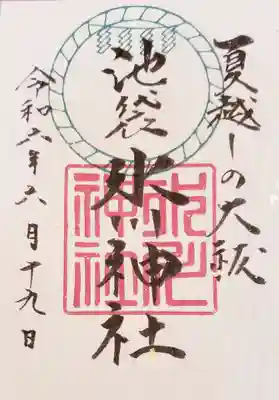 夏越しの大祓
池袋氷川神社
令和六年六月十九日
氷川
神社